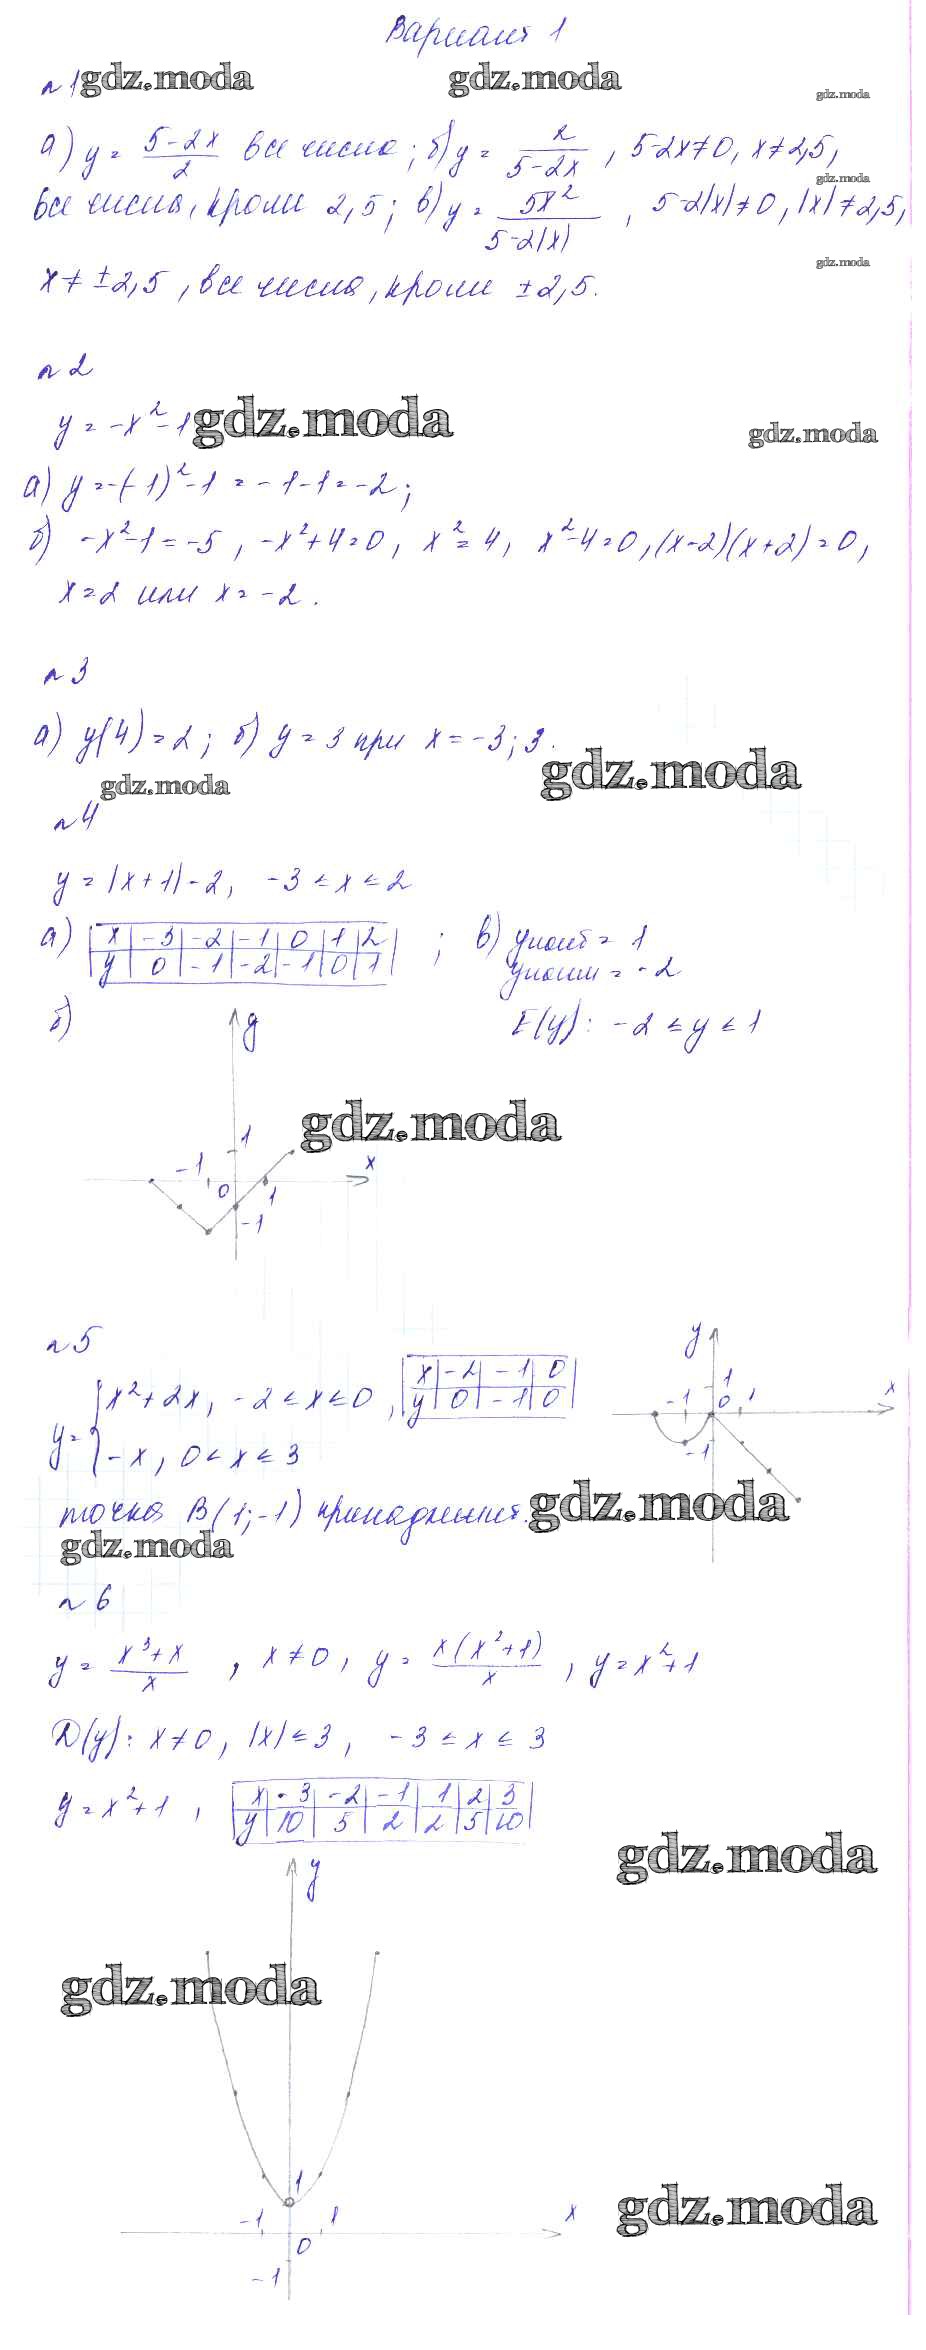 Вариант 1
n 1 gdz.moda gdz.moda gdz.moda
а) y = (5-2x)/2 все числа; б) y = 2/(5-2x), 5-2x≠0, x≠2,5,
gdz.moda
все числа, кроме 2,5; в) y = 5x²/(5-2|x|), 5-2|x|≠0, |x|≠2,5,
gdz.moda
x≠±2,5, все числа, кроме ±2,5.
n 2
y = -x²-1 gdz.moda gdz.moda
а) y = -(-1)²-1 = -1-1 = -2;
б) -x²-1 = -5, -x²+4=0, x²=4, x²-4=0, (x-2)(x+2)=0,
x=2 или x=-2.
n 3
а) y(4)=2; б) y=3 при x=-3; 3.
gdz.moda
gdz.moda
n 4
y = |x+1|-2, -3≤x≤2
а) x -3 -2 -1 0 1 2 ; в) yнаиб = 1
y 0 -1 -2 -1 0 1 yнаим = -2
б) y E(y): -2≤y≤1
gdz.moda
1
-1 x
0 1
-1
n 5 y
y = { x²+2x, -2≤x≤0, x -2 -1 0 1 x
y 0 -1 0 -1 0 1
-x, 0<x≤3 -1
точка B(1;-1) принадлежит. gdz.moda
gdz.moda
n 6
y = (x³+x)/x, x≠0, y = x(x²+1)/x, y=x²+1
D(y): x≠0, |x|≤3, -3≤x≤3
y=x²+1, x -3 -2 -1 1 2 3
y 10 5 2 2 5 10
gdz.moda
y
gdz.moda
1
gdz.moda
-1 1 x
0
-1